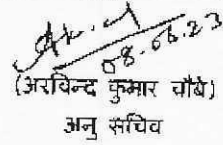 08.06.23
(अरविन्द कुमार चौबे)
अनु सचिव